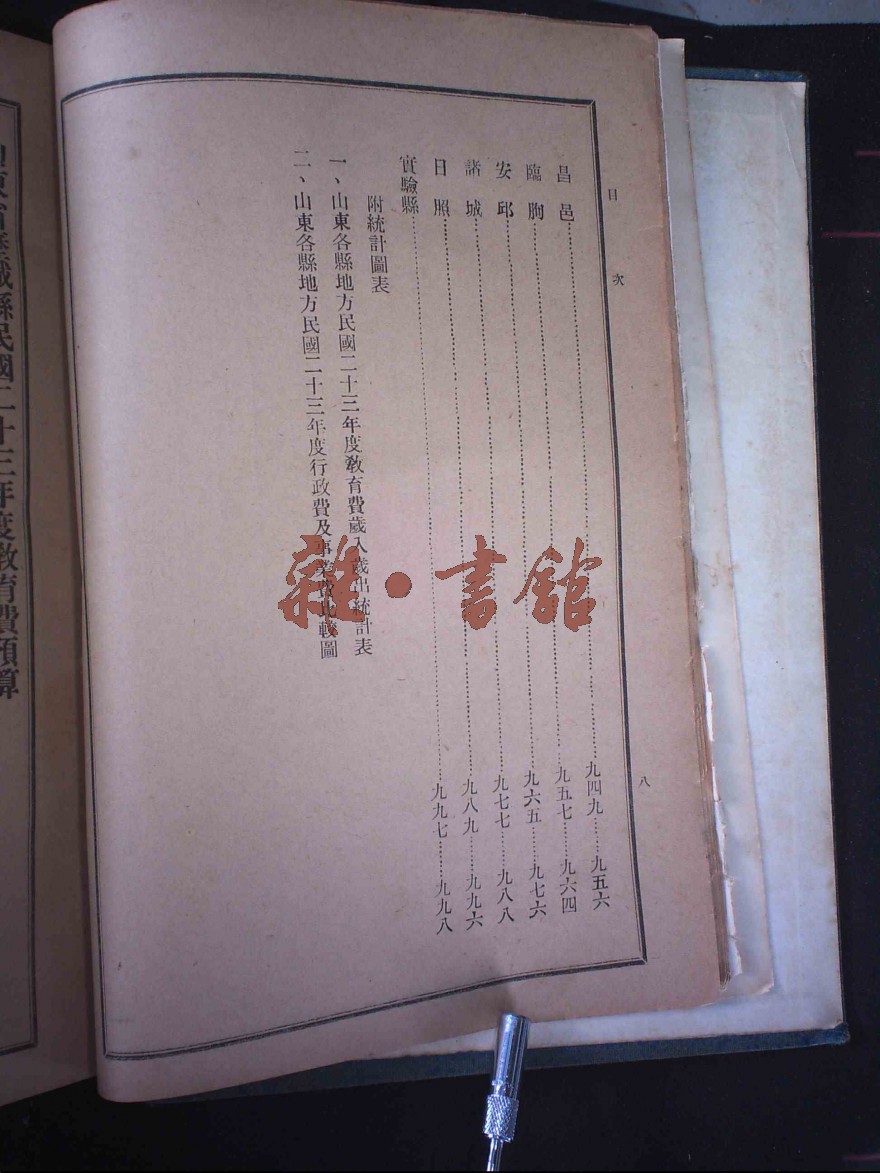 目次 八
昌邑……九四九……九五六
臨朐……九五七……九六四
安邱……九六五……九七六
諸城……九七七……九八八
日照……九八九……九九六
實驗縣……九九七……九九八
附統計圖表
一、山東各縣地方民國二十三年度教育費歲入歲出統計表
二、山東各縣地方民國二十三年度行政費及事業費比較圖
縣民國二十三年度教育費預算
雜·書館